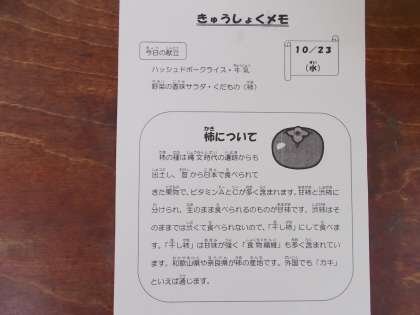 きゅうしょくメモ
今日の献立
10/23
(水)
ハッシュドポークライス・牛乳
野菜の香味サラダ・くだもの(柿)
柿について
柿の種は縄文時代の遺跡からも
出土し、昔から日本で食べられて
きた果物で、ビタミンAとCが多く含まれます。甘柿と渋柿に
分けられ、生のまま食べられるものが甘柿です。渋柿はそ
のままでは渋くて食べられないので、「干し柿」にして食べま
す。「干し柿」は甘味が強く「食物繊維」も多く含まれてい
ます。和歌山県や奈良県が柿の産地です。外国でも「カキ」
といえば通じます。